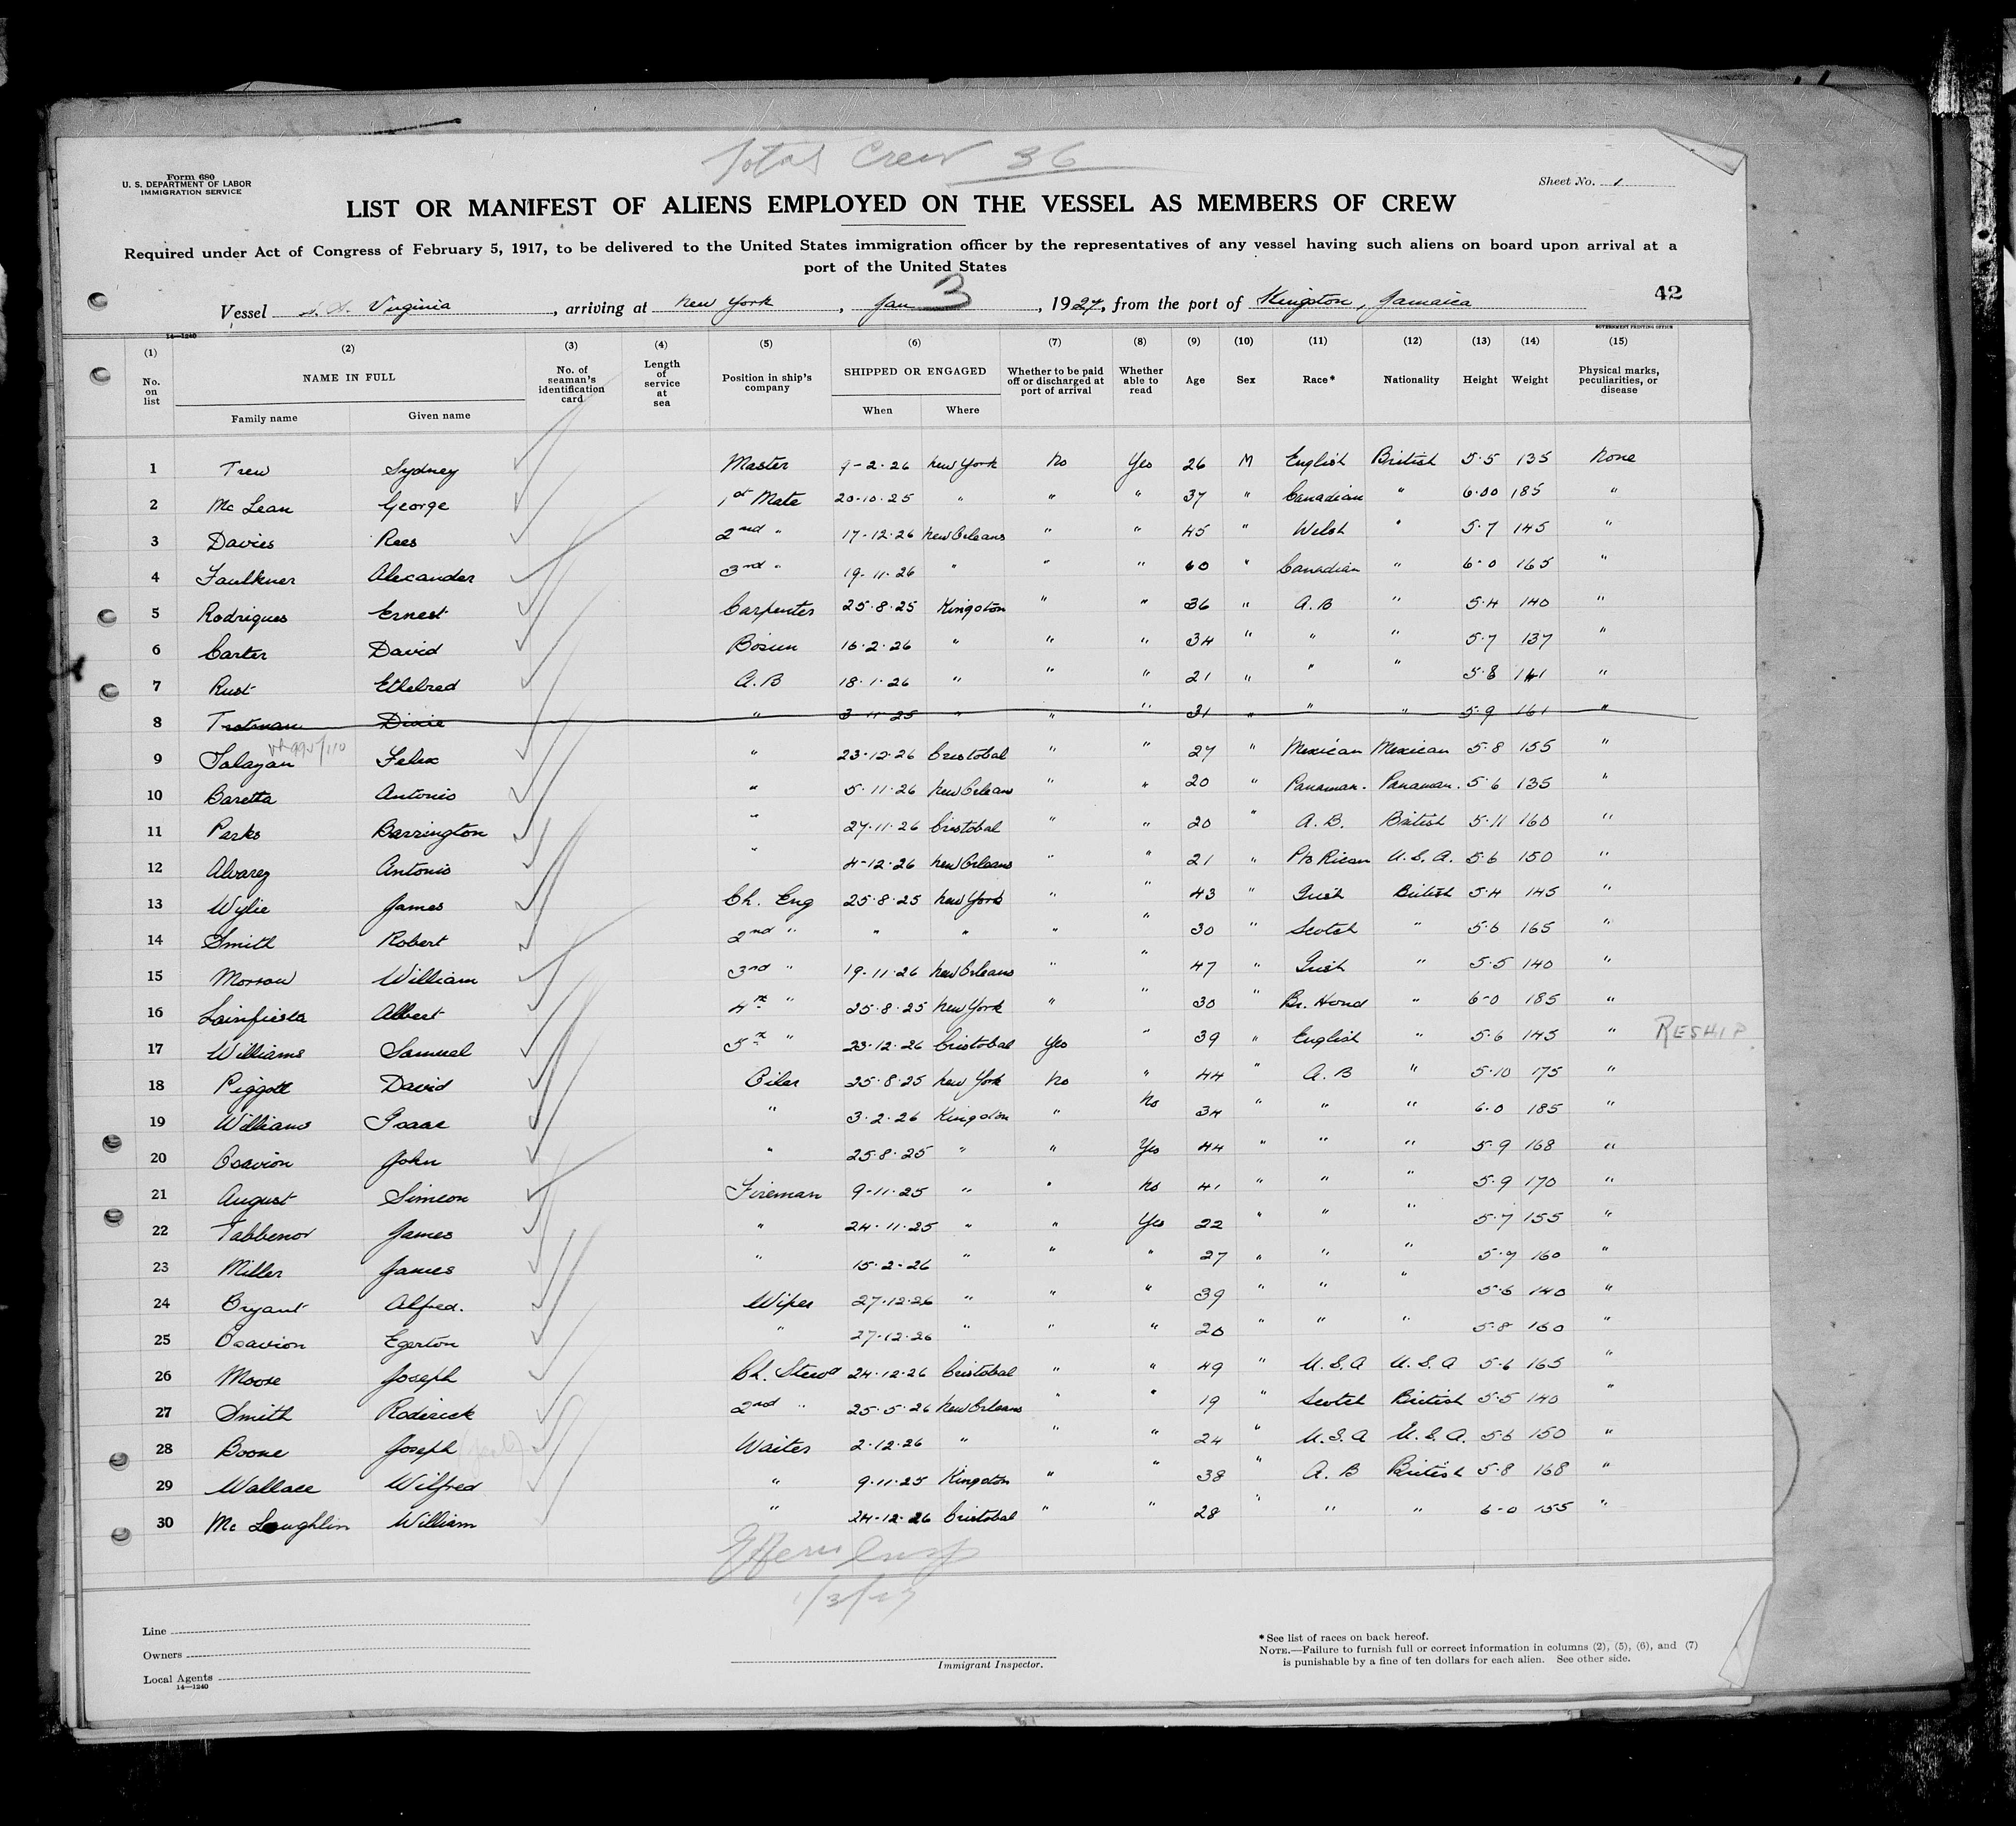 Total Crew 36
Form 680
U. S. DEPARTMENT OF LABOR
IMMIGRATION SERVICE
Sheet No. 1
LIST OR MANIFEST OF ALIENS EMPLOYED ON THE VESSEL AS MEMBERS OF CREW
Required under Act of Congress of February 5, 1917, to be delivered to the United States immigration officer by the representatives of any vessel having such aliens on board upon arrival at a
port of the United States
Vessel S.S. Virginia, arriving at New York, Jan 3, 1927, from the port of Kingston, Jamaica
42
14—1240
GOVERNMENT PRINTING OFFICE
(1) (2) (3) (4) (5) (6) (7) (8) (9) (10) (11) (12) (13) (14) (15)
No. on list NAME IN FULL Family name Given name No. of seaman's identification card Length of service at sea Position in ship's company SHIPPED OR ENGAGED When Where Whether to be paid off or discharged at port of arrival Whether able to read Age Sex Race* Nationality Height Weight Physical marks, peculiarities, or disease
1 Trew Sydney Master 9-2-26 New York No Yes 26 M English British 5.5 135 None
2 Mc Lean George 1st Mate 20-10-25 " " " 37 " Canadian " 6.00 185 "
3 Davies Rees 2nd " 17-12-26 New Orleans " " 45 " Welsh " 5.7 145 "
4 Faulkner Alexander 3rd " 19-11-26 " " " 60 " Canadian " 6-0 165 "
5 Rodriques Ernest Carpenter 25.8.25 Kingston " " 36 " A.B " 5.4 140 "
6 Carter David Bosun 16.2.26 " " " 34 " " " 5.7 137 "
7 Rust Ethelred A.B 18.1.26 " " " 21 " " " 5.8 141 "
8 Trotman Dixie " 3-11-25 " " " 31 " " " 5.9 161 "
9 Talayan Felex " 23-12-26 Cristobal " " 27 " Mexican Mexican 5.8 155 "
10 Baretta Antonio " 5.11.26 New Orleans " " 20 " Panaman. Panaman. 5.6 135 "
11 Parks Barrington " 27.11.26 Cristobal " " 20 " A.B. British 5.11 160 "
12 Alvarez Antonio " 4-12-26 New Orleans " " 21 " Pto Rican U.S.A. 5.6 150 "
13 Wylie James Ch. Eng 25.8.25 New York " " 43 " Irish British 5.4 145 "
14 Smith Robert 2nd " " " " " 30 " Scotch " 5.6 165 "
15 Morrow William 3rd " 19-11-26 New Orleans " " 47 " Irish " 5.5 140 "
16 Lainfiesta Albert 4th " 25.8.25 New York " " 30 " Br. Hond " 6-0 185 "
17 Williams Samuel 5th " 23-12-26 Cristobal Yes " 39 " English " 5.6 145 " RESHIP.
18 Piggott David Oiler 25.8.25 New York No " 44 " A.B " 5.10 175 "
19 Williams Isaac " 3.2.26 Kingston " No 34 " " " 6.0 185 "
20 Osavion John " 25.8.25 " " Yes 44 " " " 5.9 168 "
21 August Simeon Fireman 9-11-25 " " No 41 " " " 5.9 170 "
22 Tabbenor James " 24-11-25 " " Yes 22 " " " 5.7 155 "
23 Miller James " 15-2-26 " " " 27 " " " 5.9 160 "
24 Bryant Alfred. Wiper 27.12.26 " " " 39 " " " 5.6 140 "
25 Osavion Egerton " 27.12.26 " " " 20 " " " 5.8 160 "
26 Moore Joseph Ch. Stewd 24-12-26 Cristobal " " 49 " U.S.A U.S.A 5.6 165 "
27 Smith Roderick 2nd " 25.5.26 New Orleans " " 19 " Scotch British 5.5 140 "
28 Boone Joseph Waiter 2.12.26 " " " 24 " U.S.A U.S.A. 5.6 150 "
29 Wallace Wilfred " 9.11.25 Kingston " " 38 " A.B British 5.8 168 "
30 Mc Loughlin William " 24-12-26 Cristobal " " 28 " " " 6-0 155 "
1/3/27
Line
Owners
Local Agents
14—1240
Immigrant Inspector.
*See list of races on back hereof.
NOTE.—Failure to furnish full or correct information in columns (2), (5), (6), and (7)
is punishable by a fine of ten dollars for each alien. See other side.